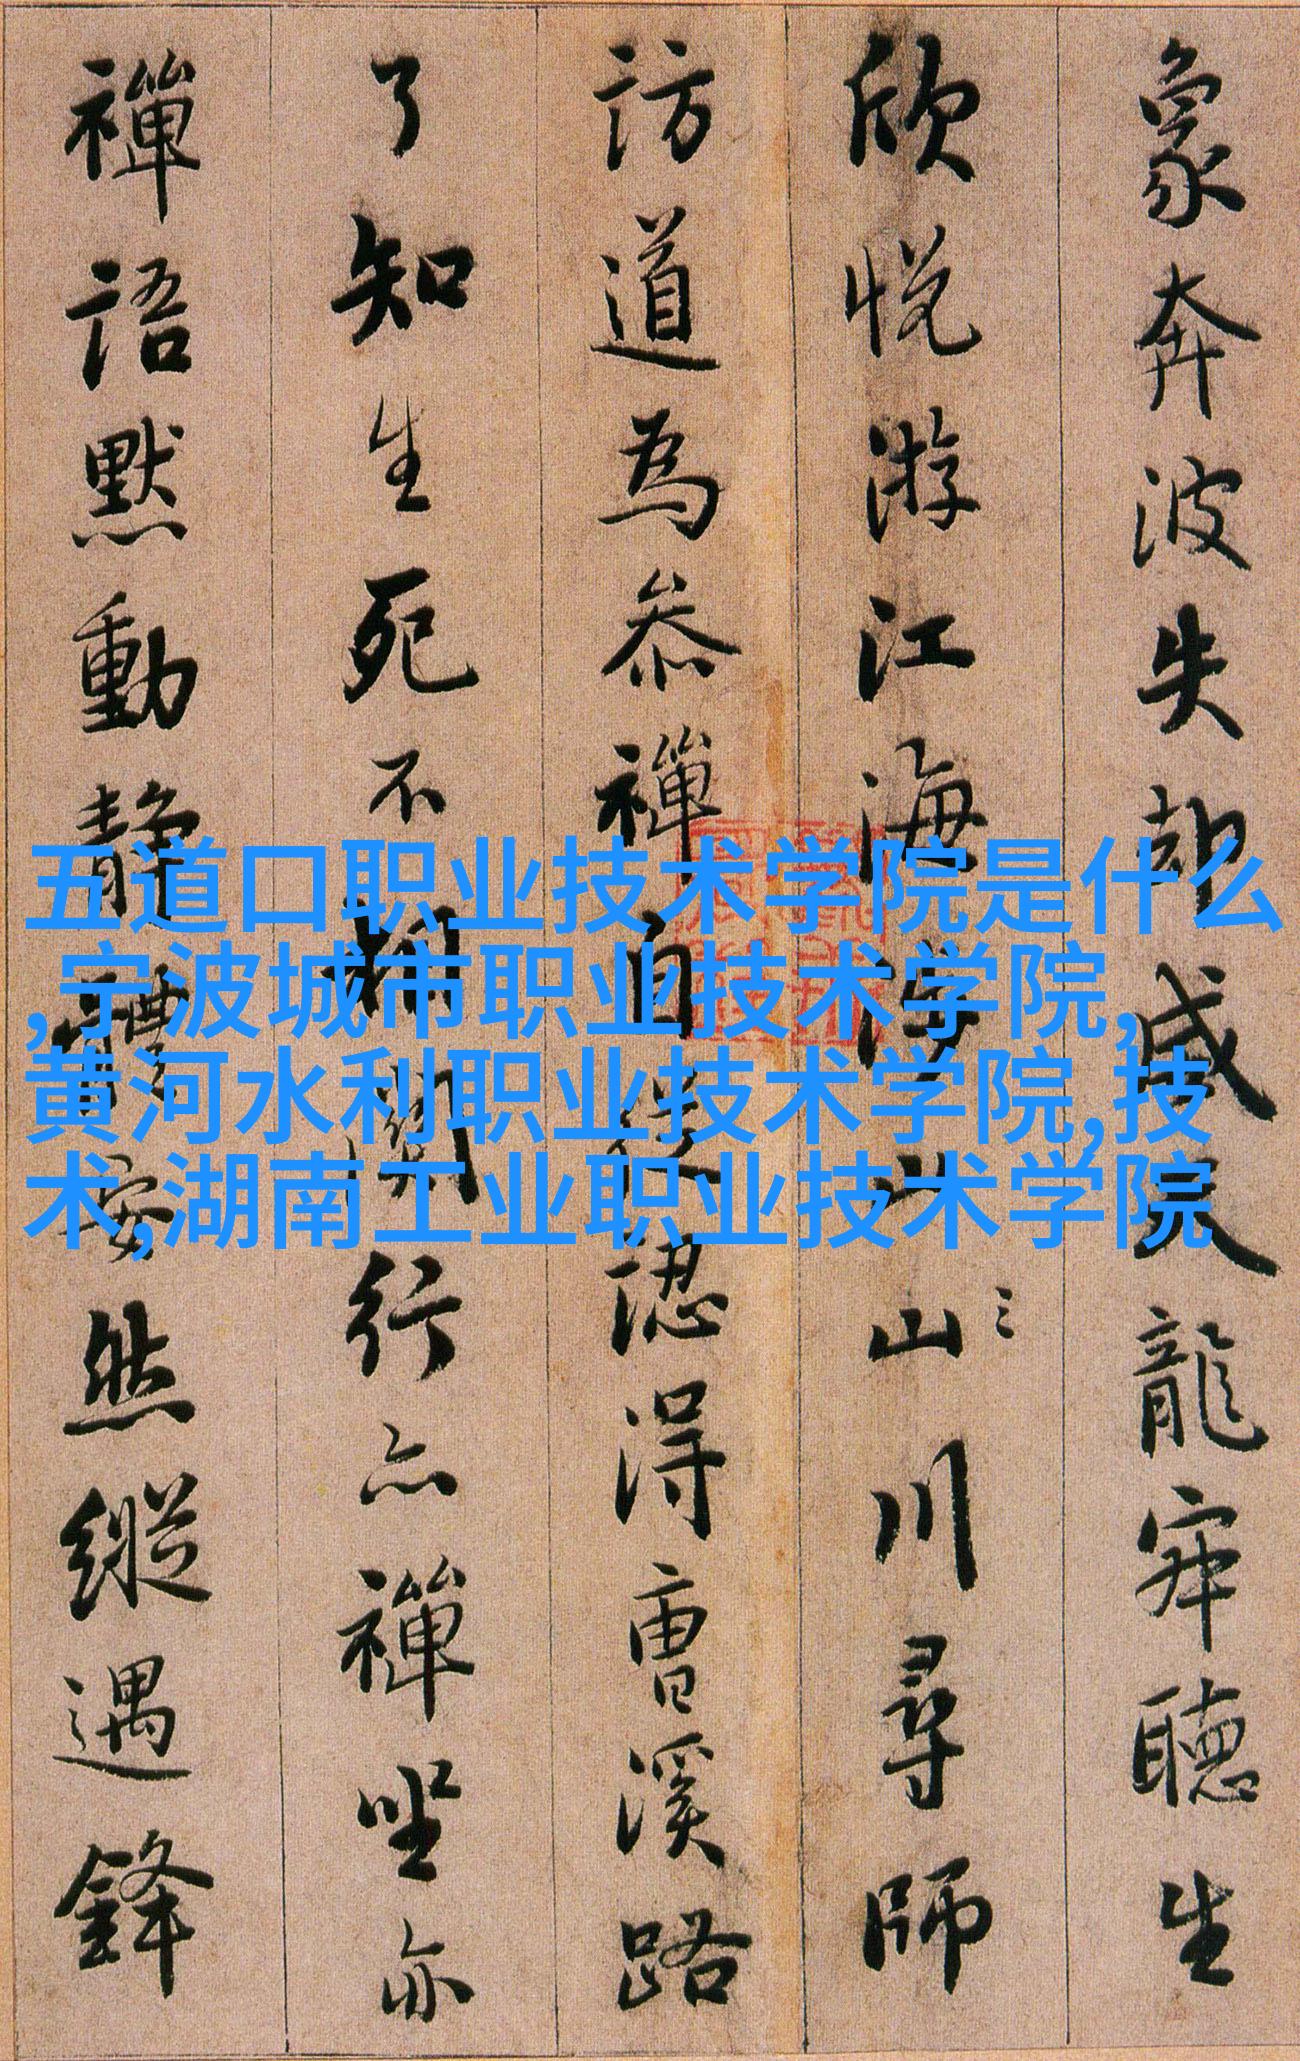 象奔波失却威天龍寂聽生
欣悅游江海涉山川尋師
訪道為參禪自從認得曹溪路
了知生死不相關行亦禪坐亦
禪語默動靜體安然縱遇鋒
五道口职业技术学院是什么
,宁波城市职业技术学院,
黄河水利职业技术学院,技
术,湖南工业职业技术学院